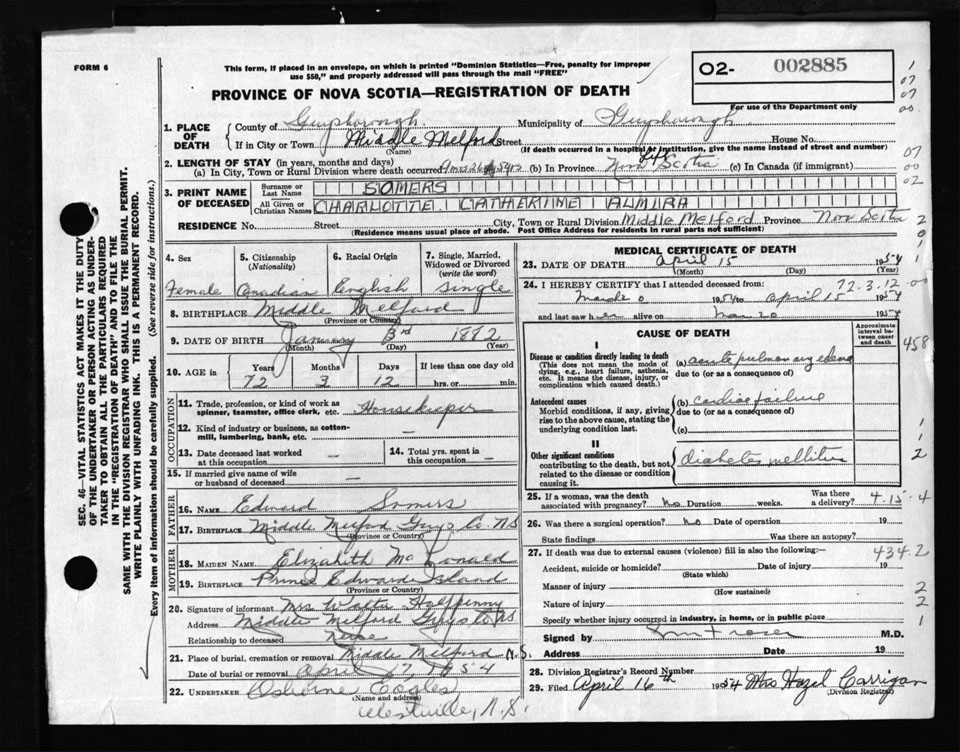 FORM 6
This form, if placed in an envelope, on which is printed "Dominion Statistics—Free, penalty for improper
use $50," and properly addressed will pass through the mail "FREE"
02- 002885
For use of the Department only
PROVINCE OF NOVA SCOTIA—REGISTRATION OF DEATH
1. PLACE OF DEATH
County of Guysborough Municipality of Guysborough
If in City or Town Middle Melford Street House No.
(Name) (If death occurred in a hospital or institution, give the name instead of street and number)
2. LENGTH OF STAY (in years, months and days)
(a) In City, Town or Rural Division where death occurred (b) In Province Nova Scotia (c) In Canada (if immigrant)
3. PRINT NAME OF DECEASED
Surname or Last Name SOMERS
All Given or Christian Names CHARLOTTE CATHERINE ALMIRA
RESIDENCE No. Street City, Town or Rural Division Middle Melford Province Nova Scotia
(Residence means usual place of abode. Post Office Address for residents in rural parts not sufficient)
4. Sex Female
5. Citizenship (Nationality) Canadian
6. Racial Origin English
7. Single, Married, Widowed or Divorced (write the word) Single
8. BIRTHPLACE Middle Melford
(Province or Country)
9. DATE OF BIRTH January 3rd 1882
(Month) (Day) (Year)
10. AGE in Years Months Days If less than one day old
72 3 12 hrs. or min.
OCCUPATION
11. Trade, profession, or kind of work as spinner, teamster, office clerk, etc. Housekeeper
12. Kind of industry or business, as cotton-mill, lumbering, bank, etc. —
13. Date deceased last worked at this occupation —
14. Total yrs. spent in this occupation —
15. If married give name of wife or husband of deceased —
FATHER
16. NAME Edward Somers
17. BIRTHPLACE Middle Melford Guys Co NS
(Province or Country)
MOTHER
18. MAIDEN NAME Elizabeth McDonald
19. BIRTHPLACE Prince Edward Island
(Province or Country)
20. Signature of informant Mrs Walter Halfpenny
Address Middle Melford Guys Co NS
Relationship to deceased Neice
21. Place of burial, cremation or removal Middle Melford N.S.
Date of burial or removal April 17, 1954
22. UNDERTAKER Osborne
(Name and address)
N.S.
MEDICAL CERTIFICATE OF DEATH
23. DATE OF DEATH April 15 1954
(Month) (Day) (Year)
72-3-12
24. I HEREBY CERTIFY that I attended deceased from:
1954 to April 15 1954
and last saw her alive on 1954
CAUSE OF DEATH
Approximate interval between onset and death
I
Disease or condition directly leading to death
(This does not mean the mode of dying, e.g., heart failure, asthenia, etc. It means the disease, injury, or complication which caused death.)
(a) acute pulmonary edema
due to (or as a consequence of)
Antecedent causes
Morbid conditions, if any, giving rise to the above cause, stating the underlying condition last.
(b) cardiac failure
due to (or as a consequence of)
(c)
II
Other significant conditions
contributing to the death, but not related to the disease or condition causing it.
diabetes mellitus
25. If a woman, was the death associated with pregnancy? No Duration weeks. Was there a delivery?
4-15-4
26. Was there a surgical operation? No Date of operation 19
State findings Was there an autopsy?
27. If death was due to external causes (violence) fill in also the following:—
434.2
Accident, suicide or homicide? Date of injury 19
(State which)
Manner of injury
(How sustained)
Nature of injury
Specify whether injury occurred in industry, in home, or in public place
Signed by M.D.
Address Date 19
28. Division Registrar's Record Number
29. Filed April 16th 1954 Mrs Hazel Carrigan
(Division Registrar)
SEC. 46—VITAL STATISTICS ACT MAKES IT THE DUTY
OF THE UNDERTAKER OR PERSON ACTING AS UNDER-
TAKER TO OBTAIN ALL THE PARTICULARS REQUIRED
IN THE "REGISTRATION OF DEATH" AND TO FILE THE
SAME WITH THE DIVISION REGISTRAR WHO SHALL ISSUE THE BURIAL PERMIT.
WRITE PLAINLY WITH UNFADING INK. THIS IS A PERMANENT RECORD.
Every item of information should be carefully supplied. (See reverse side for instructions.)
458